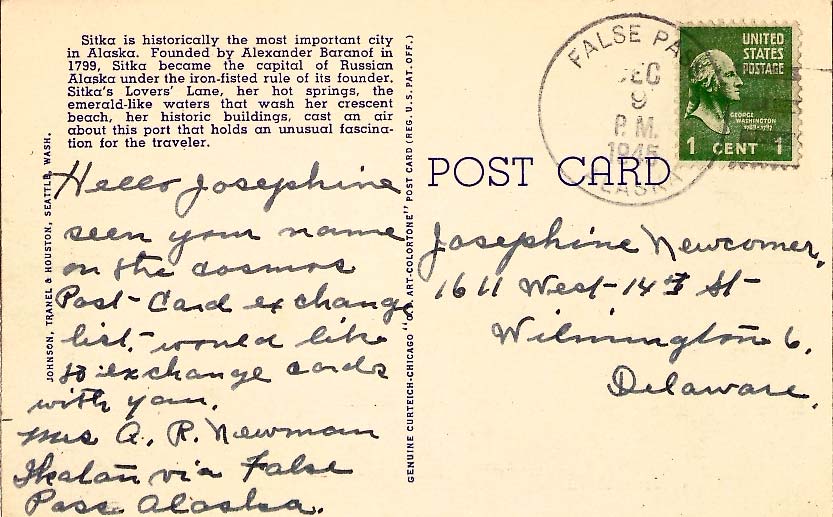 Sitka is historically the most important city
in Alaska. Founded by Alexander Baranof in
1799, Sitka became the capital of Russian
Alaska under the iron-fisted rule of its founder.
Sitka's Lovers' Lane, her hot springs, the
emerald-like waters that wash her crescent
beach, her historic buildings, cast an air
about this port that holds an unusual fascina-
tion for the traveler.
JOHNSON, TRANEL & HOUSTON, SEATTLE, WASH.
Hello Josephine
seen your name
on the cosmos
Post-Card exchange
list. would like
to exchange cards
with you.
Mrs A. R. Newman
Ikatan via False
Pass Alaska.
GENUINE CURTEICH-CHICAGO "C.T. ART-COLORTONE" POST CARD (REG. U.S. PAT. OFF.)
FALSE PA
DEC
9
P.M.
1945
LASKA
UNITED
STATES
POSTAGE
GEORGE
WASHINGTON
1789-1797
1 CENT 1
POST CARD
Josephine Newcomer,
1611 West-14th St-
Wilmington 6,
Delaware.